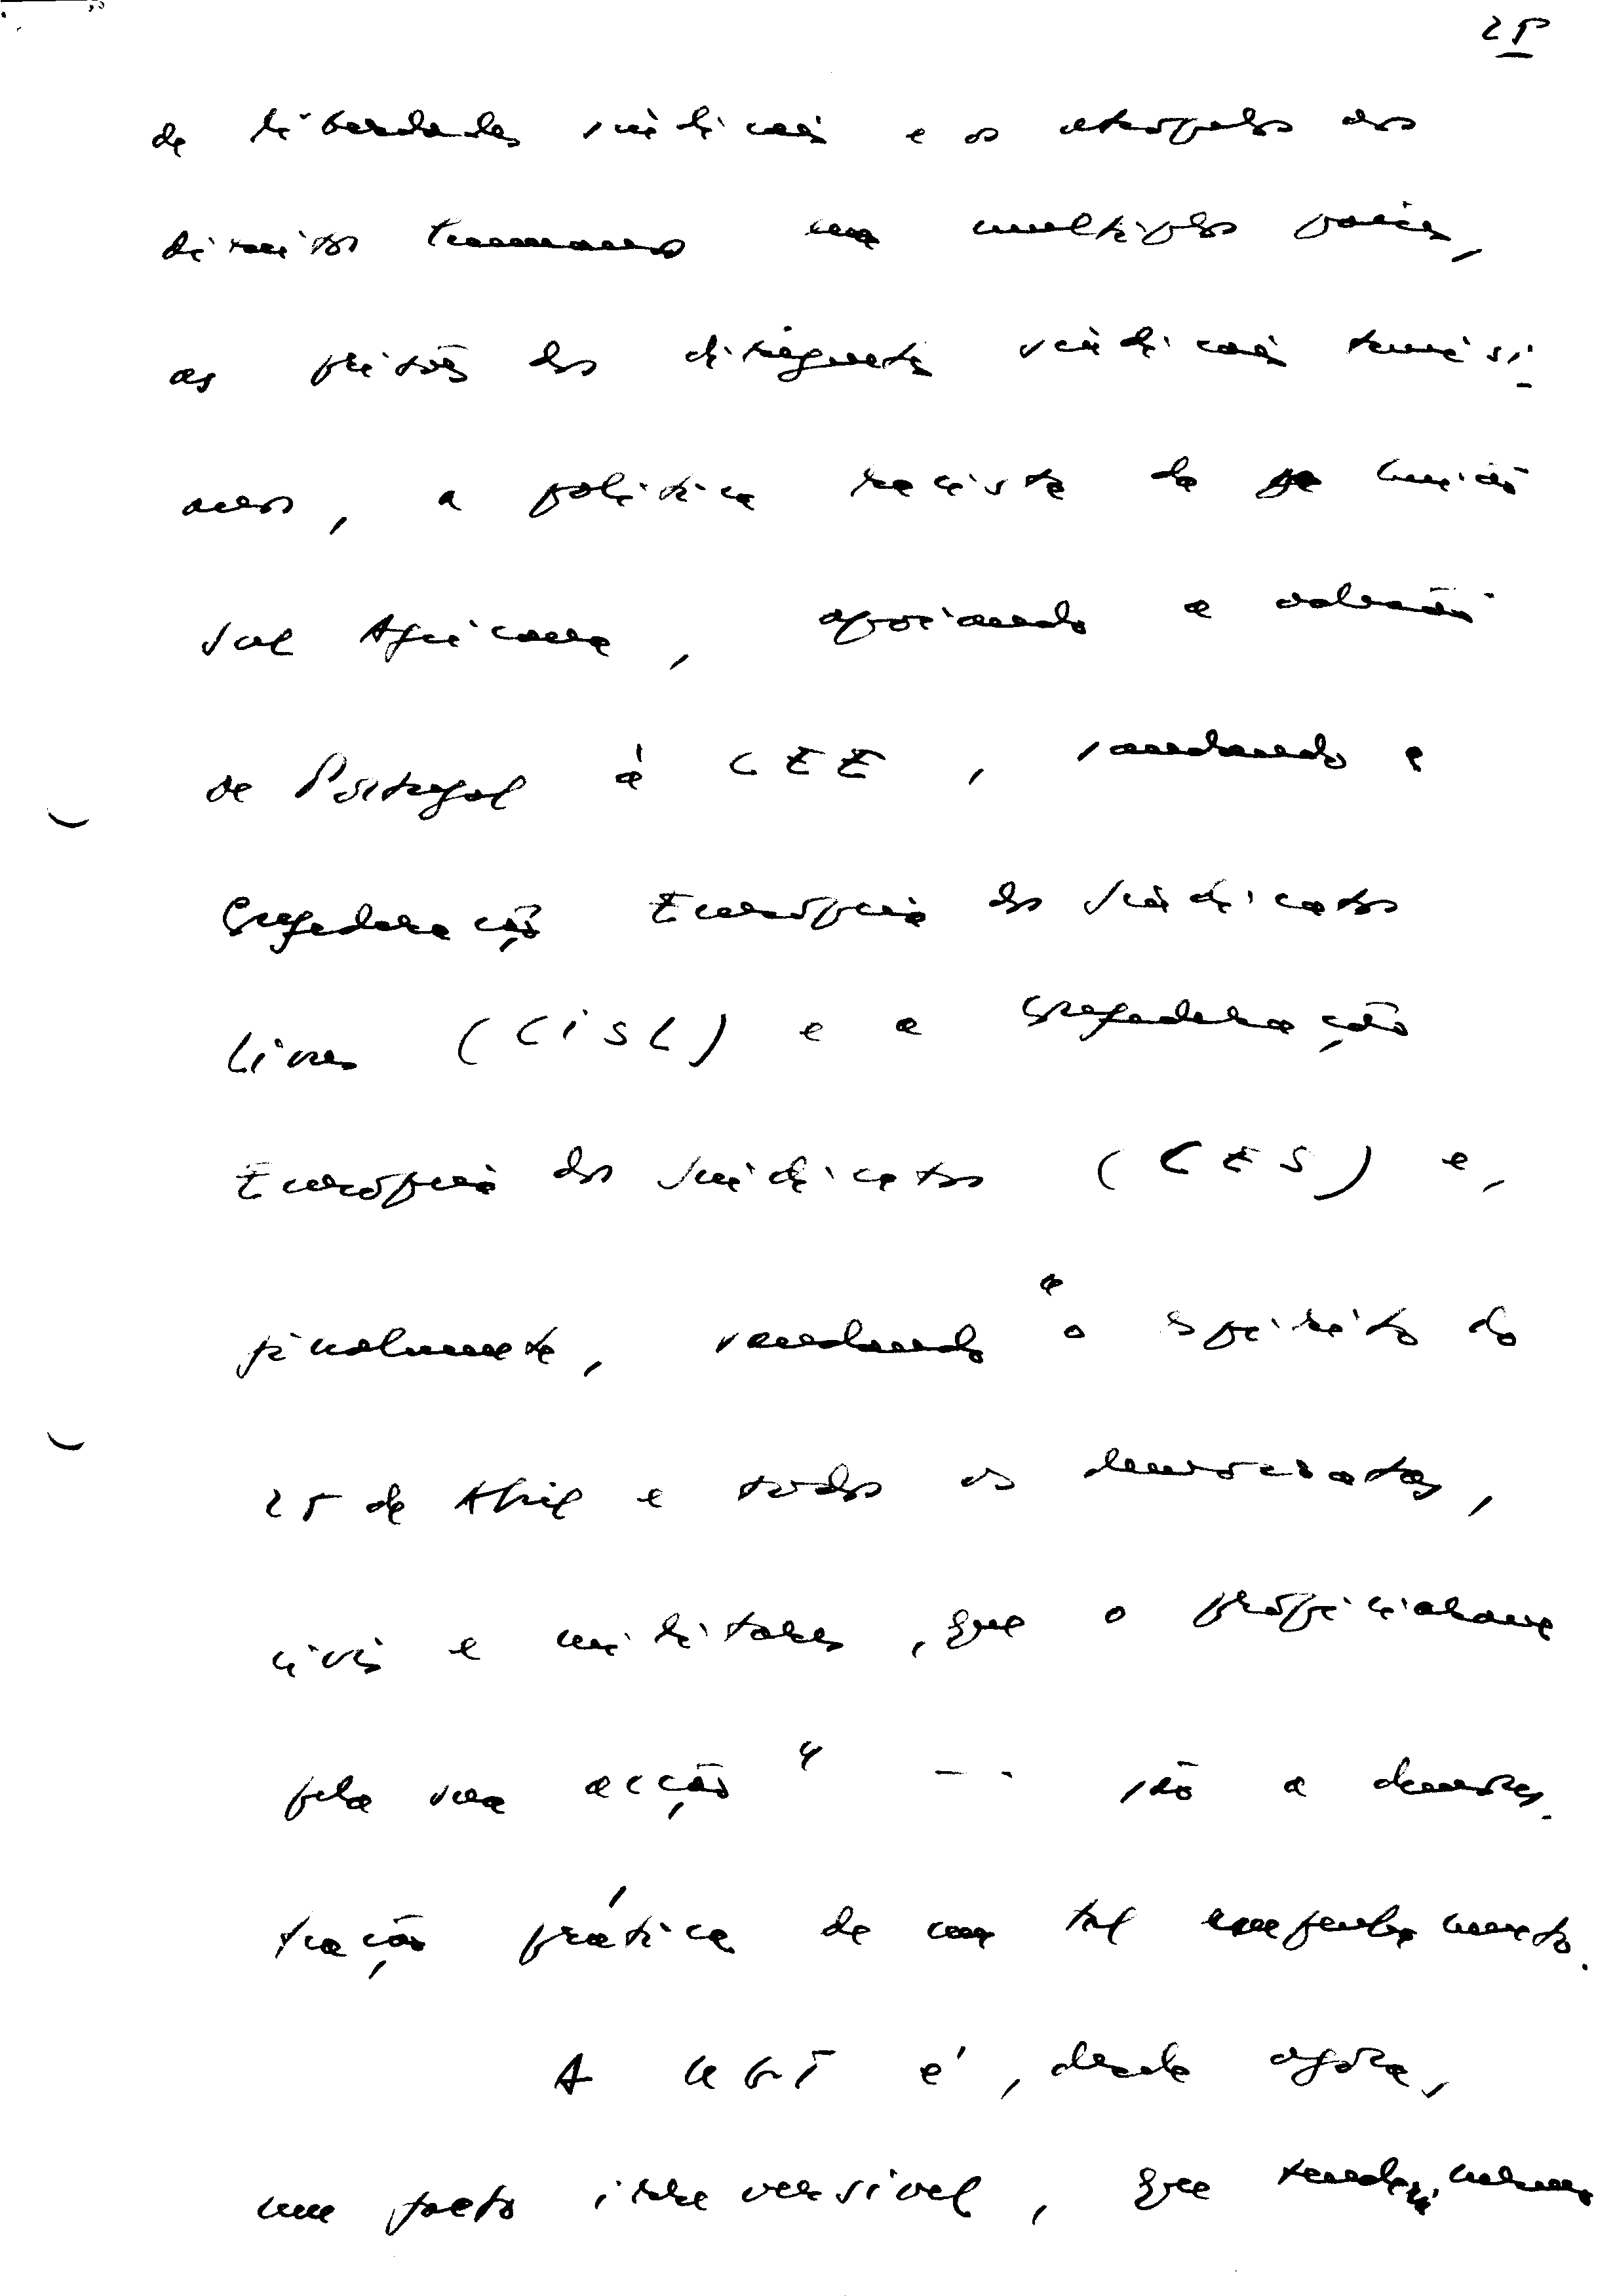 25
de liberdades sindicais e os atropelos aos
direitos humanos em multiplos paises,
as prisões dos dirigentes sindicais tunisi-
anos, a politica racista da União
Sul Africana, apoiando a adesão
de Portugal à CEE, saudando a
Confederação Europeia dos Sindicatos
Livres (CISL) e a Confederação
Europeia dos Sindicatos (CES) e,
finalmente, saudando "o espirito do
25 de Abril e todos os democratas,
civis e militares, que o propiciaram
pela sua acção" --- são a demons-
tração prática de um tal empenhamento.
A UGT é, desde agora,
um facto irreversivel, que